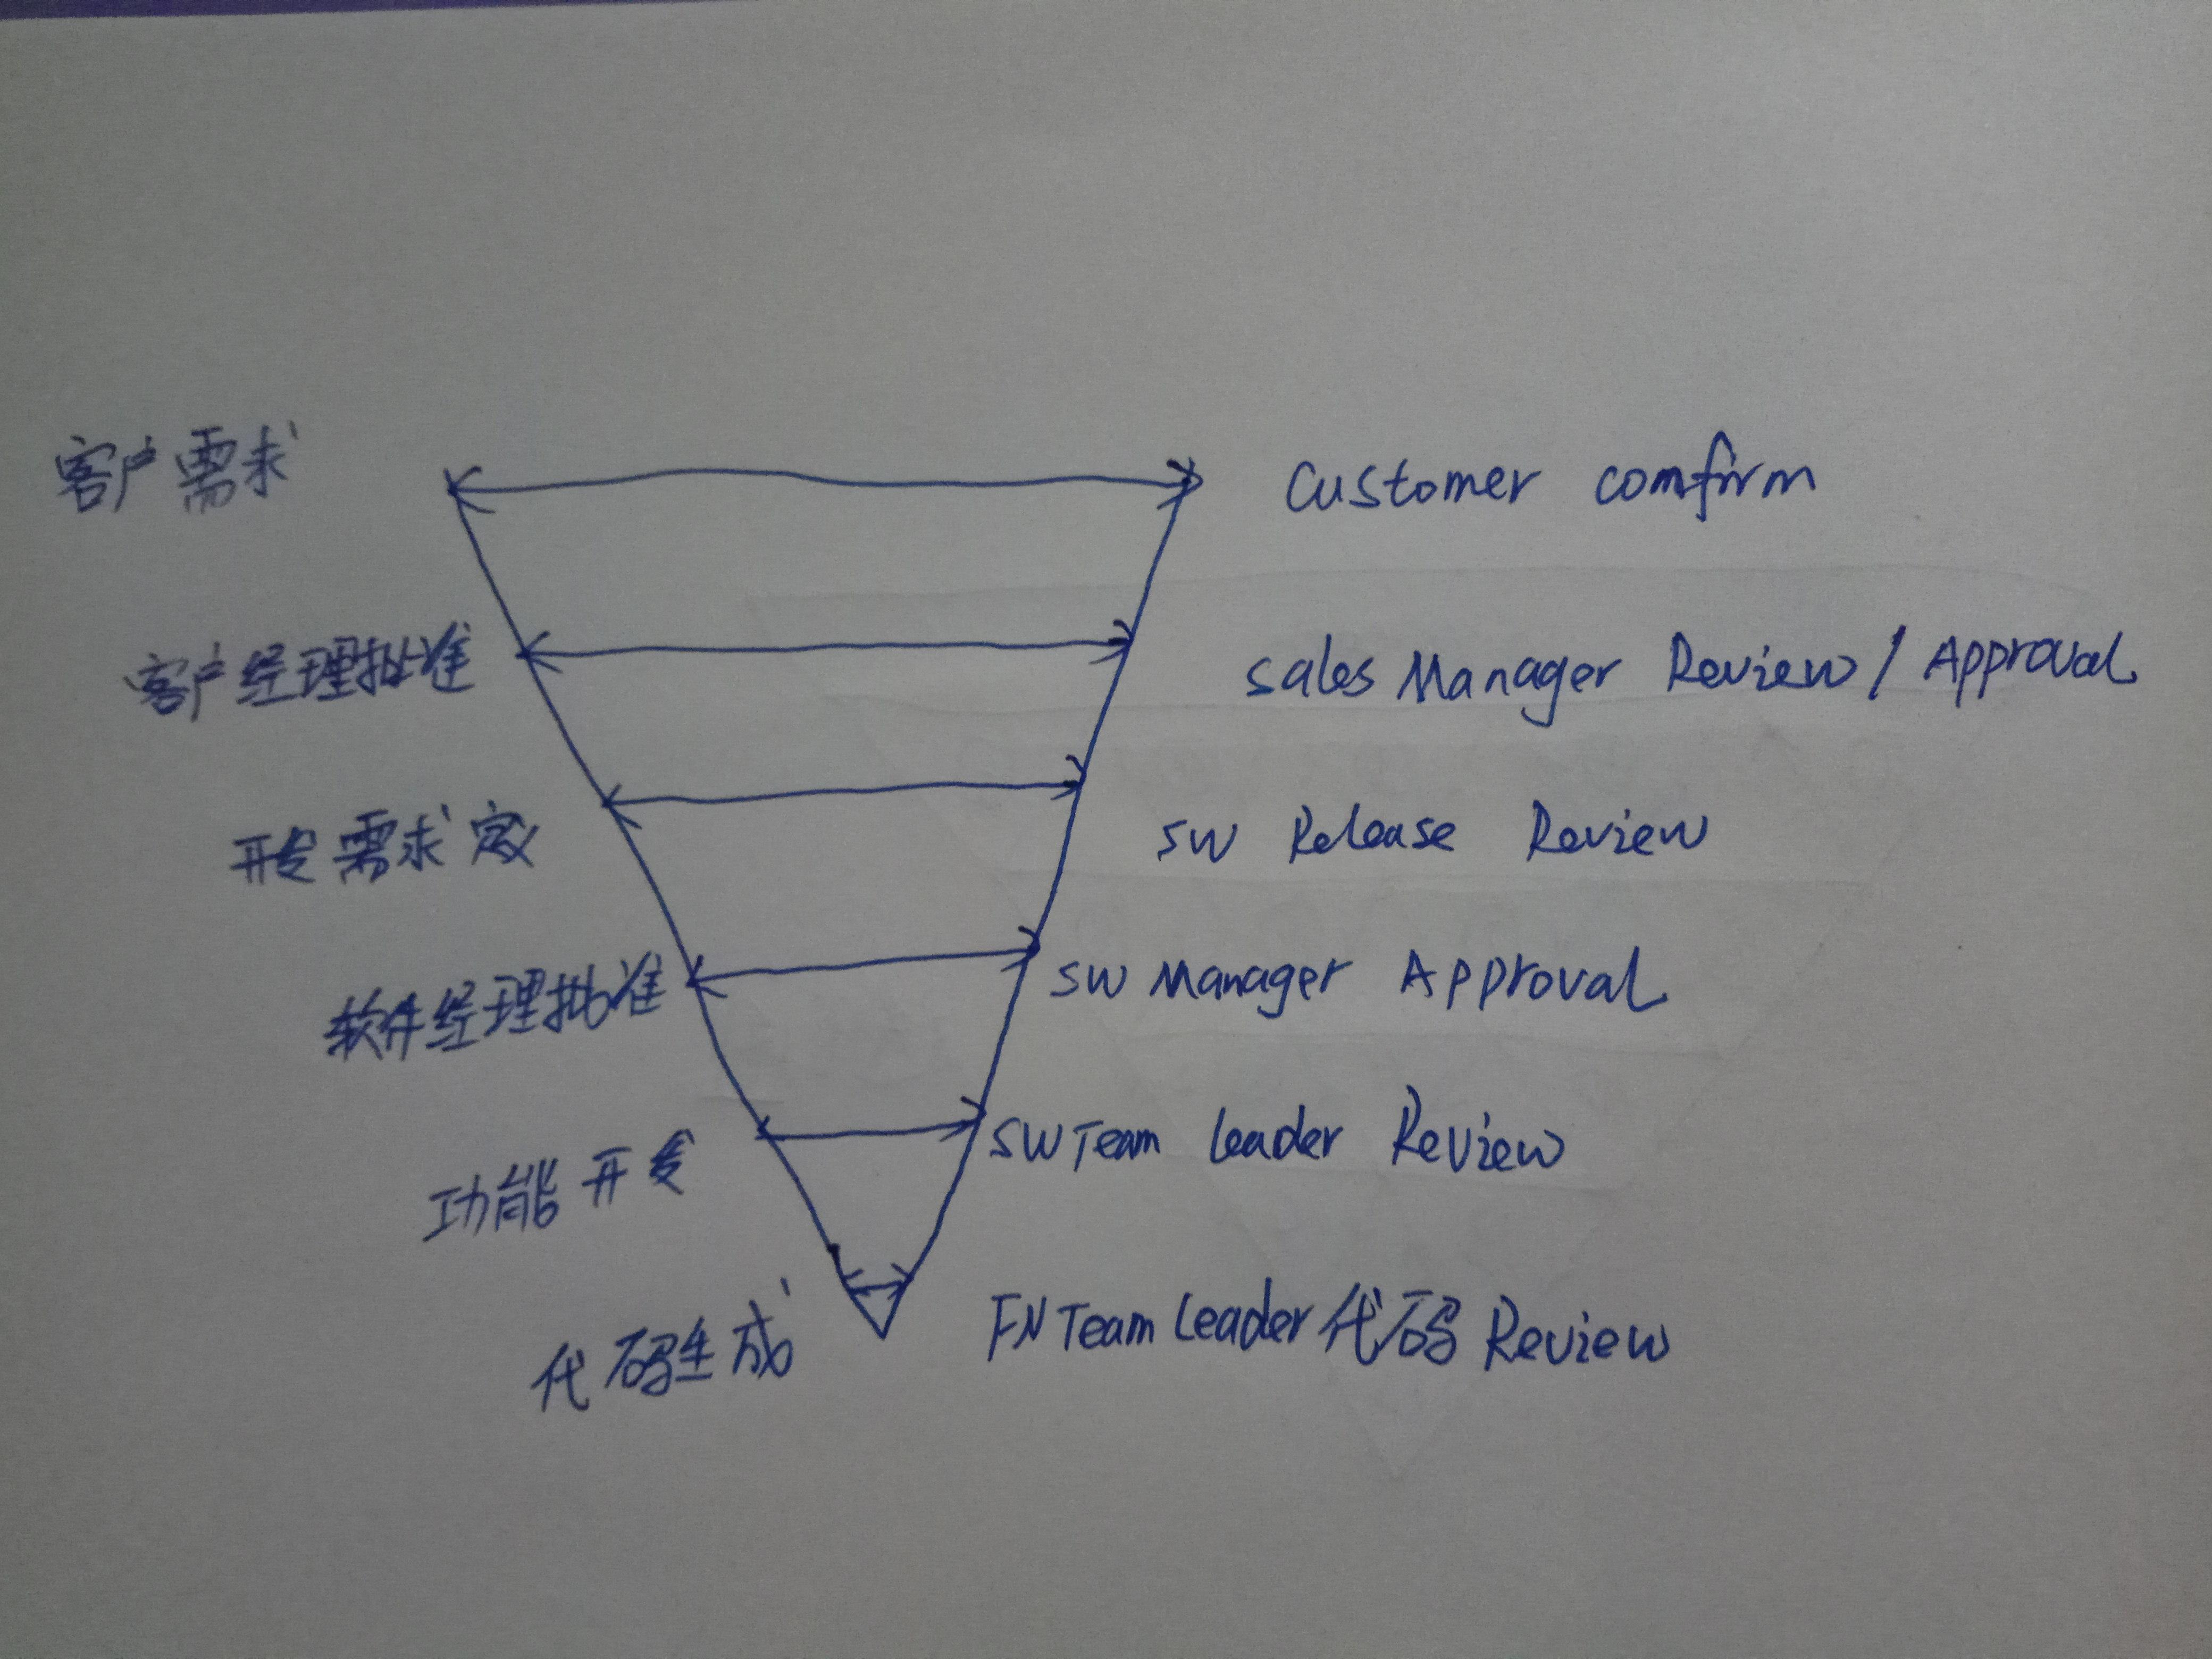 客户需求
Customer comfirm
客户经理批准
Sales Manager Review / Approval
开发需求定义
SW Release Review
软件经理批准
SW Manager Approval
功能开发
SW Team Leader Review
代码生成
FN Team Leader 代码 Review